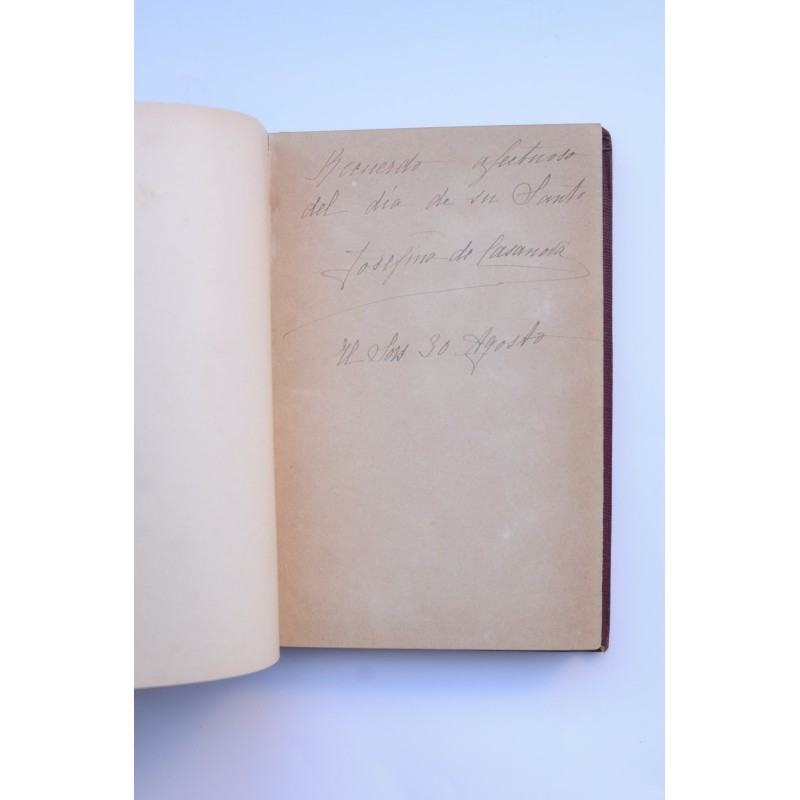 Recuerdo afectuoso
del día de su Santo
Josefina de Casanova
30 Agosto